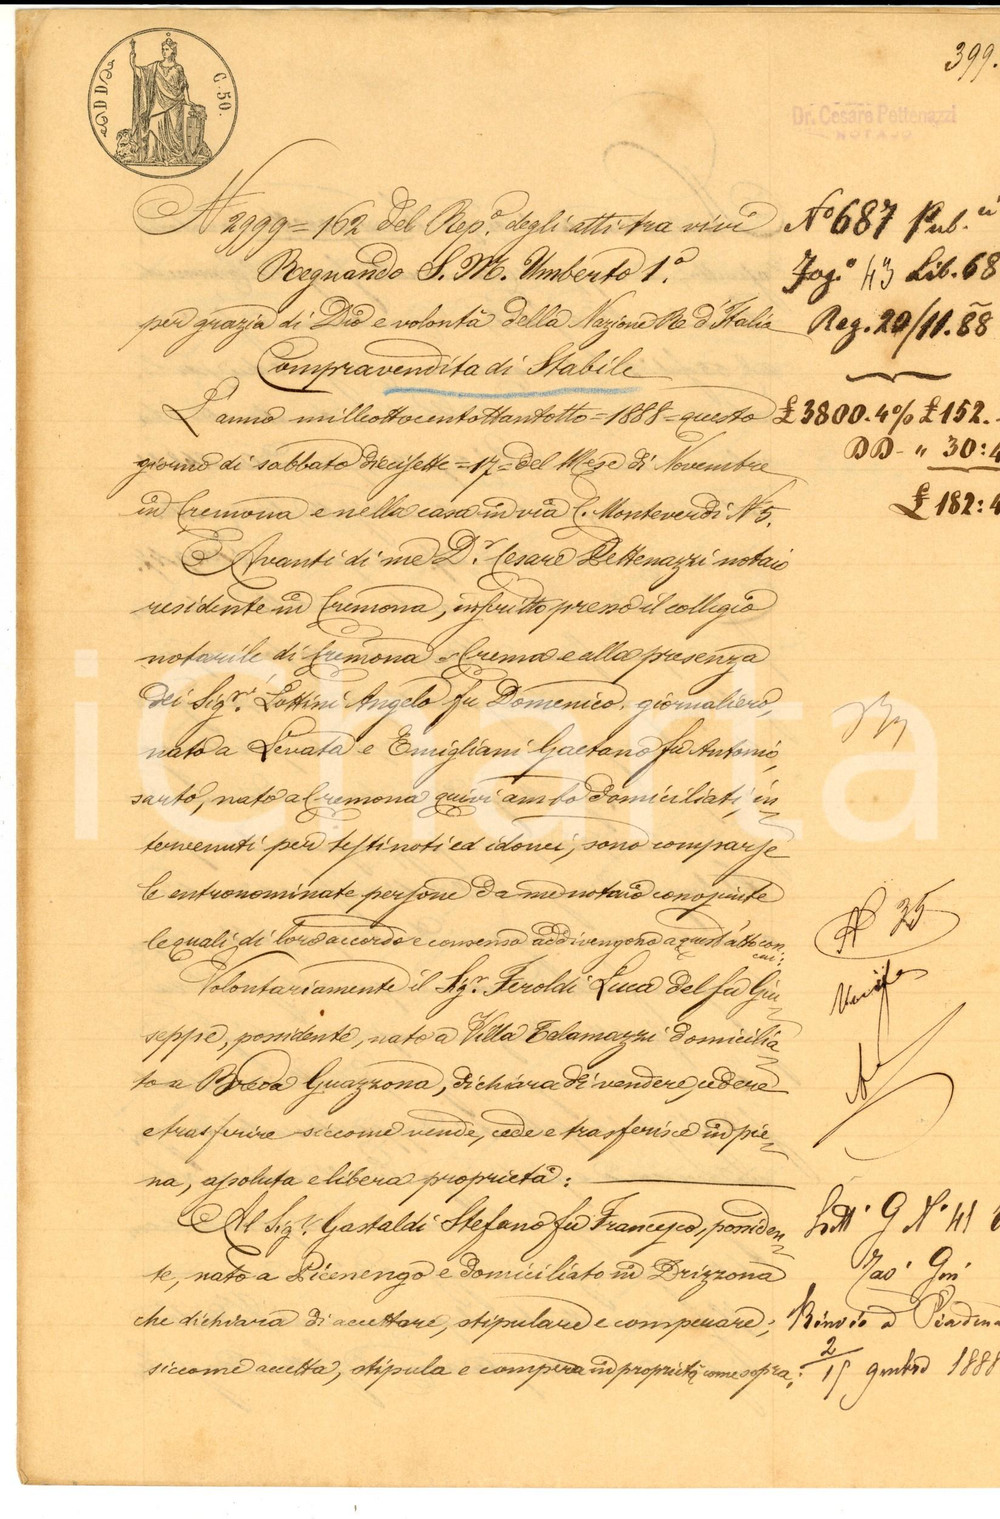 DD
C. 50.
399.
Dr. Cesare Pettenazzi
NOTAJO
N 2999 = 162 del Rep.º degli atti tra vivi
Regnando S. M. Umberto 1.º
per grazia di Dio e volontà della Nazione Re d'Italia
Compravendita di Stabile
L'anno milleottocentottantotto = 1888 = questo
giorno di sabbato diecisette = 17 = del Mese di Novembre
in Cremona e nella casa in via C. Monteverdi N 5.
Avanti di me D.r Cesare Pettenazzi notaio
residente in Cremona, inscritto presso il collegio
notarile di Cremona e Crema e alla presenza
dei Sigr. Lottini Angelo fu Domenico, giornaliero,
nato a Levata e Emigliani Gaetano fu Antonio,
sarto, nato a Cremona quivi ambo domiciliati, in-
tervenuti per testi noti ed idonei, sono comparse
le entronominate persone da me notaio conosciute
le quali di loro accordo e consenso addivengono a quest'atto con
cui:
Volontariamente il Sigr. Feroldi Luca del fu Giu-
seppe, possidente, nato a Villa Talamazzi domicilia-
to a Breda Guazzona, dichiara di vendere, cedere
e trasferire siccome vende, cede e trasferisce in pie-
na, assoluta e libera proprietà:
Al Sigr. Gastaldi Stefano fu Francesco, possiden-
te, nato a Picenengo e domiciliato in Drizzona
che dichiara di accettare, stipulare e comperare;
siccome accetta, stipula e compera in proprietà come sopra:
Nº 687 Pub.ci
Fog.º 43 Lib. 68
Reg. 20/11.88
£ 3800. 4% £ 152.
DD - " 30:4
£ 182:4
Nº 25
Lett. G Nº 41
Rinvio a Piadena
2/15 1888
icharta